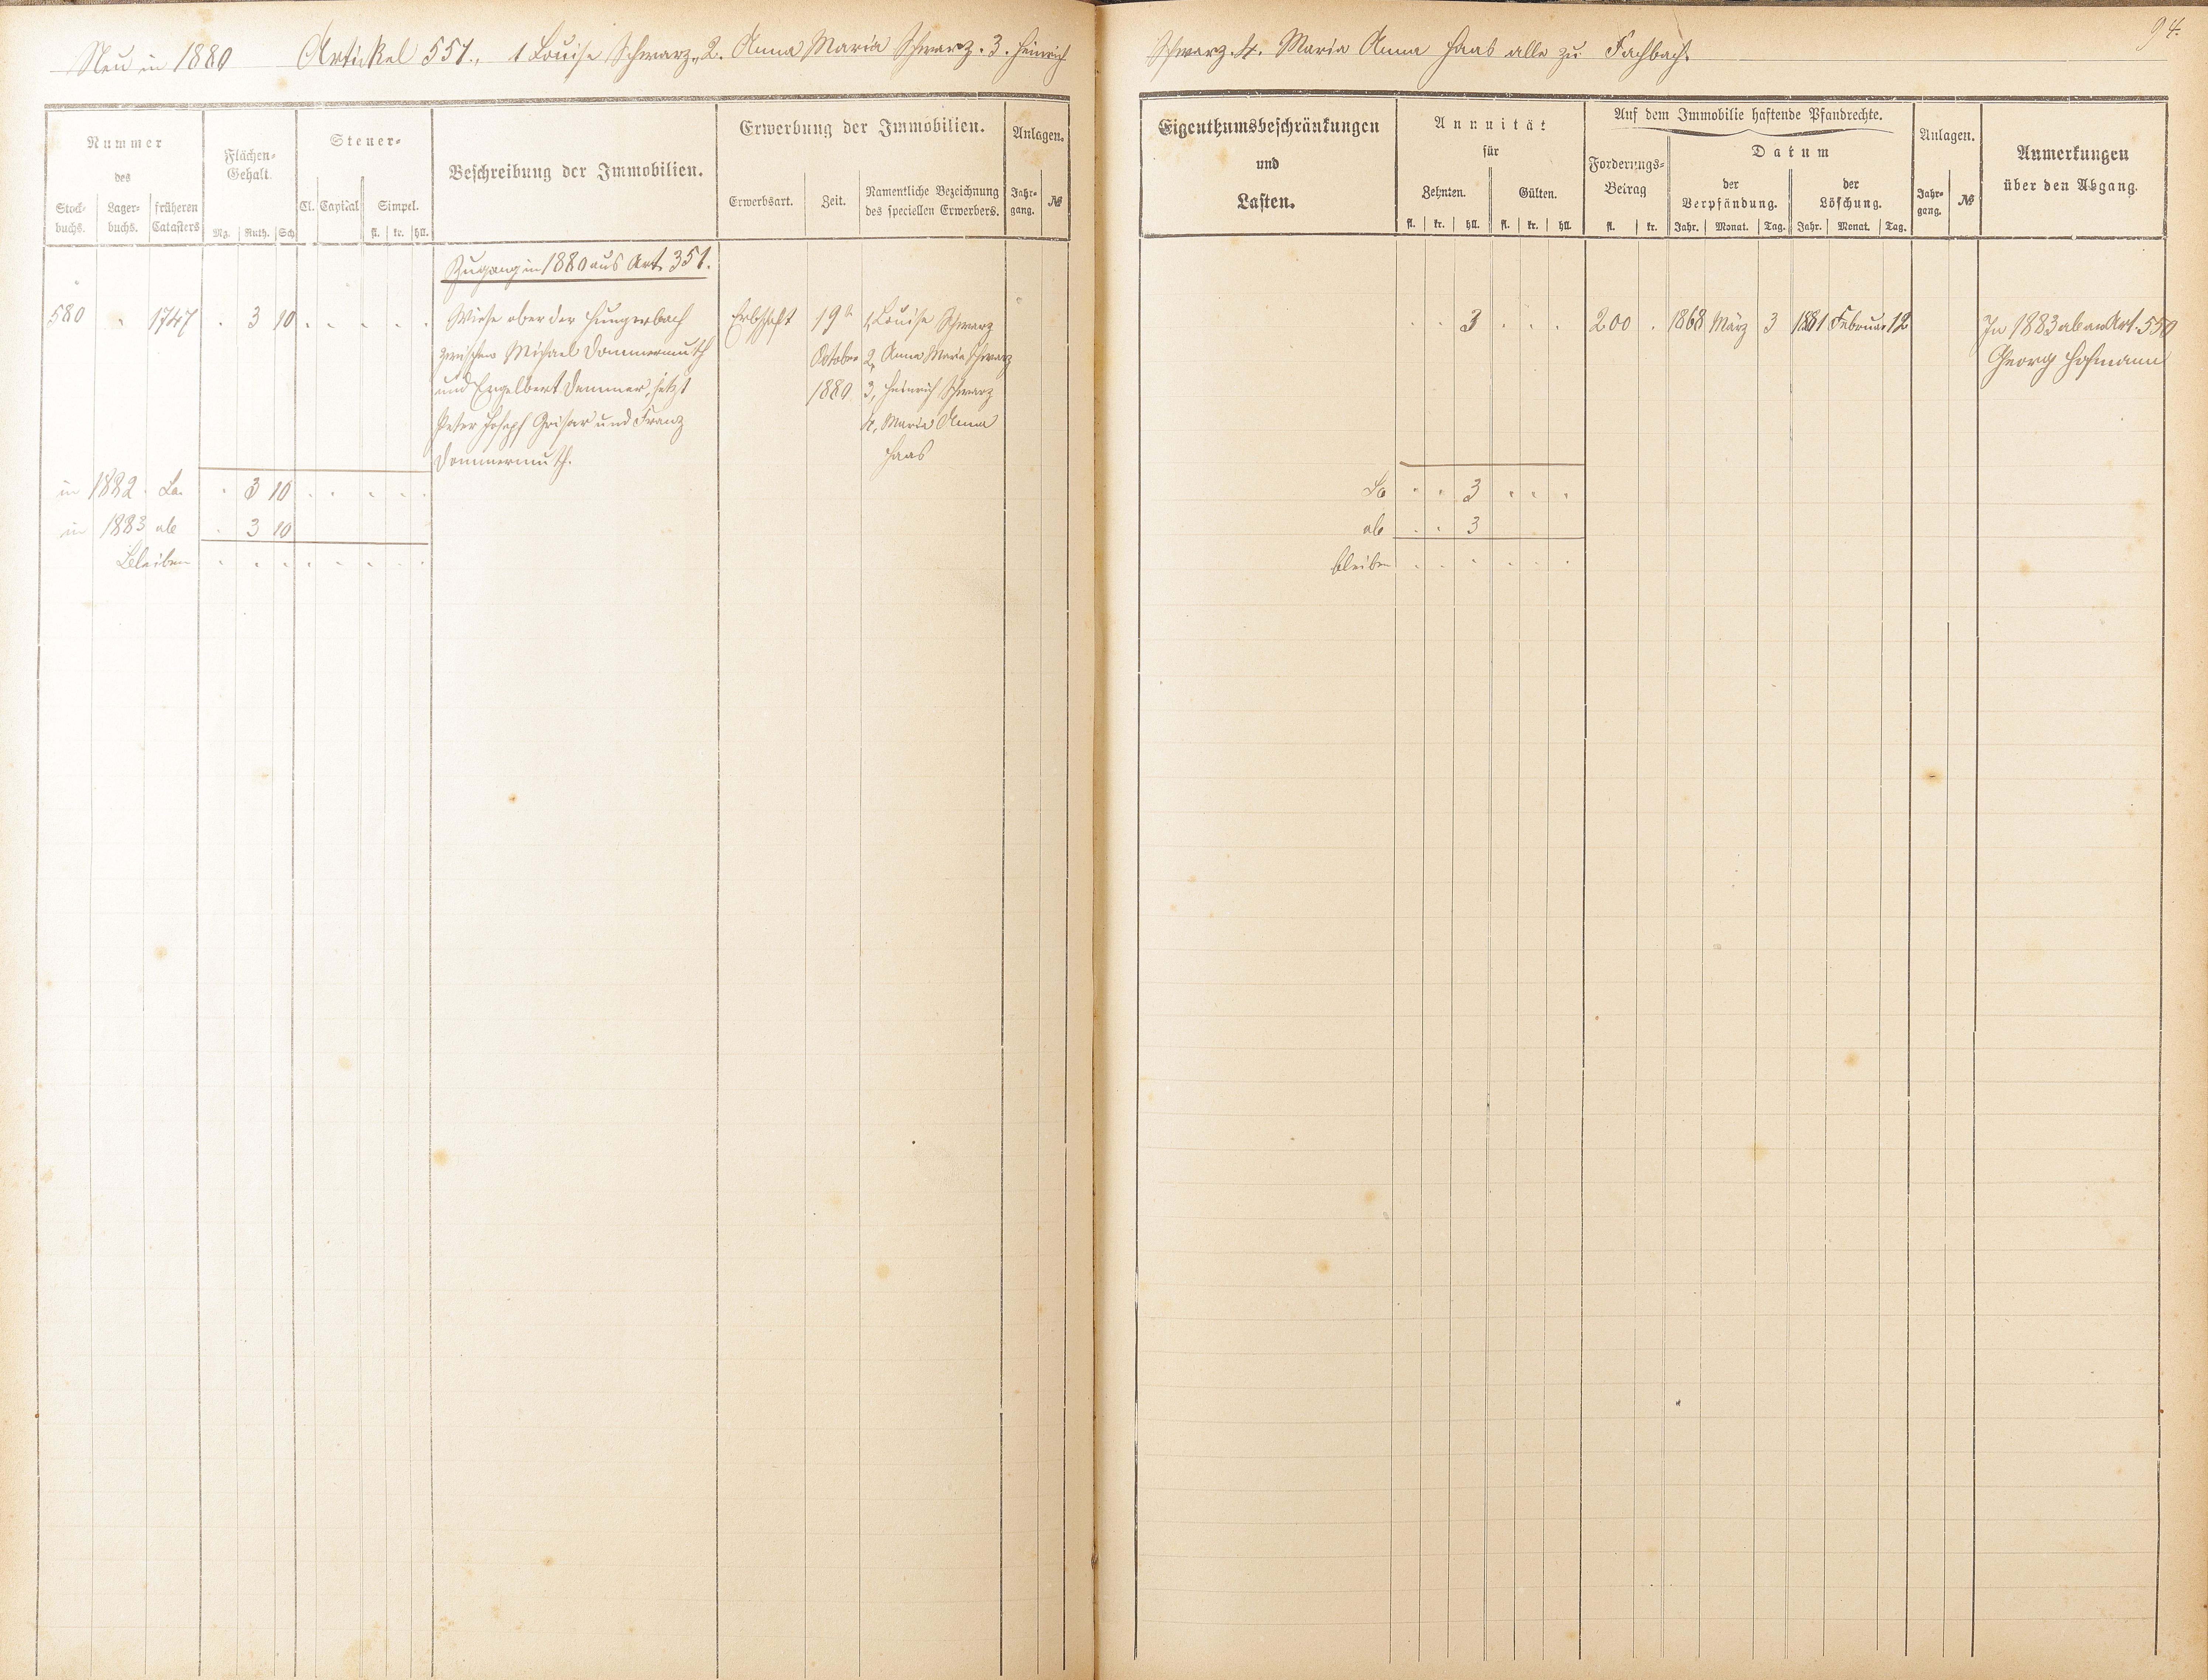 94.
Neu in 1880 Artikel 551., 1 Louise Schwarz, 2. Anna Maria Schwarz. 3. Heinrich
Schwarz. 4. Maria Anna Haas alle zu Fachbach.
Nummer
des
Stock-
buchs.
Lager-
buchs.
früheren
Catasters
Flächen-
Gehalt.
Mg. Ruth. Sch
Steuer-
Cl. Capital Simpel.
fl. kr. hll.
Beschreibung der Immobilien.
Erwerbung der Immobilien.
Erwerbsart. Zeit.
Namentliche Bezeichnung
des speciellen Erwerbers.
Anlagen.
Jahr-
gang.
№
Zugang in 1880 aus Art. 351.
580 " 1747 . 3 10 . . . . .
Wiese ober der Hungerbach
zwischen Michael Dommermuth
und Engelbert Demmer, jetzt
Peter Joseph Grisar und Franz
Dommermuth.
Erbschaft
19n
October
1880
1, Louise Schwarz
2, Anna Maria Schwarz
3, Heinrich Schwarz
4, Maria Anna
Haas
in 1882. La. . 3 10 . . . . .
in 1883 ab . 3 10
Bleiben . . . . . . . .
Eigenthumsbeschränkungen
und
Lasten.
Annuität
für
Zehnten. Gülten.
fl. kr. hll. fl. kr. hll.
Auf dem Immobilie haftende Pfandrechte.
Forderungs-
Betrag
fl. kr.
Datum
der
Verpfändung.
Jahr. Monat. Tag.
der
Löschung.
Jahr. Monat. Tag.
Anlagen.
Jahr-
gang.
№
Anmerkungen
über den Abgang.
. . 3 . . . 200 . 1868 März 3 1881 Februar 12
In 1883 ab an Art. 550
Georg Hofmann
La . . 3 . . .
ab . . 3
bleiben . . . . . .